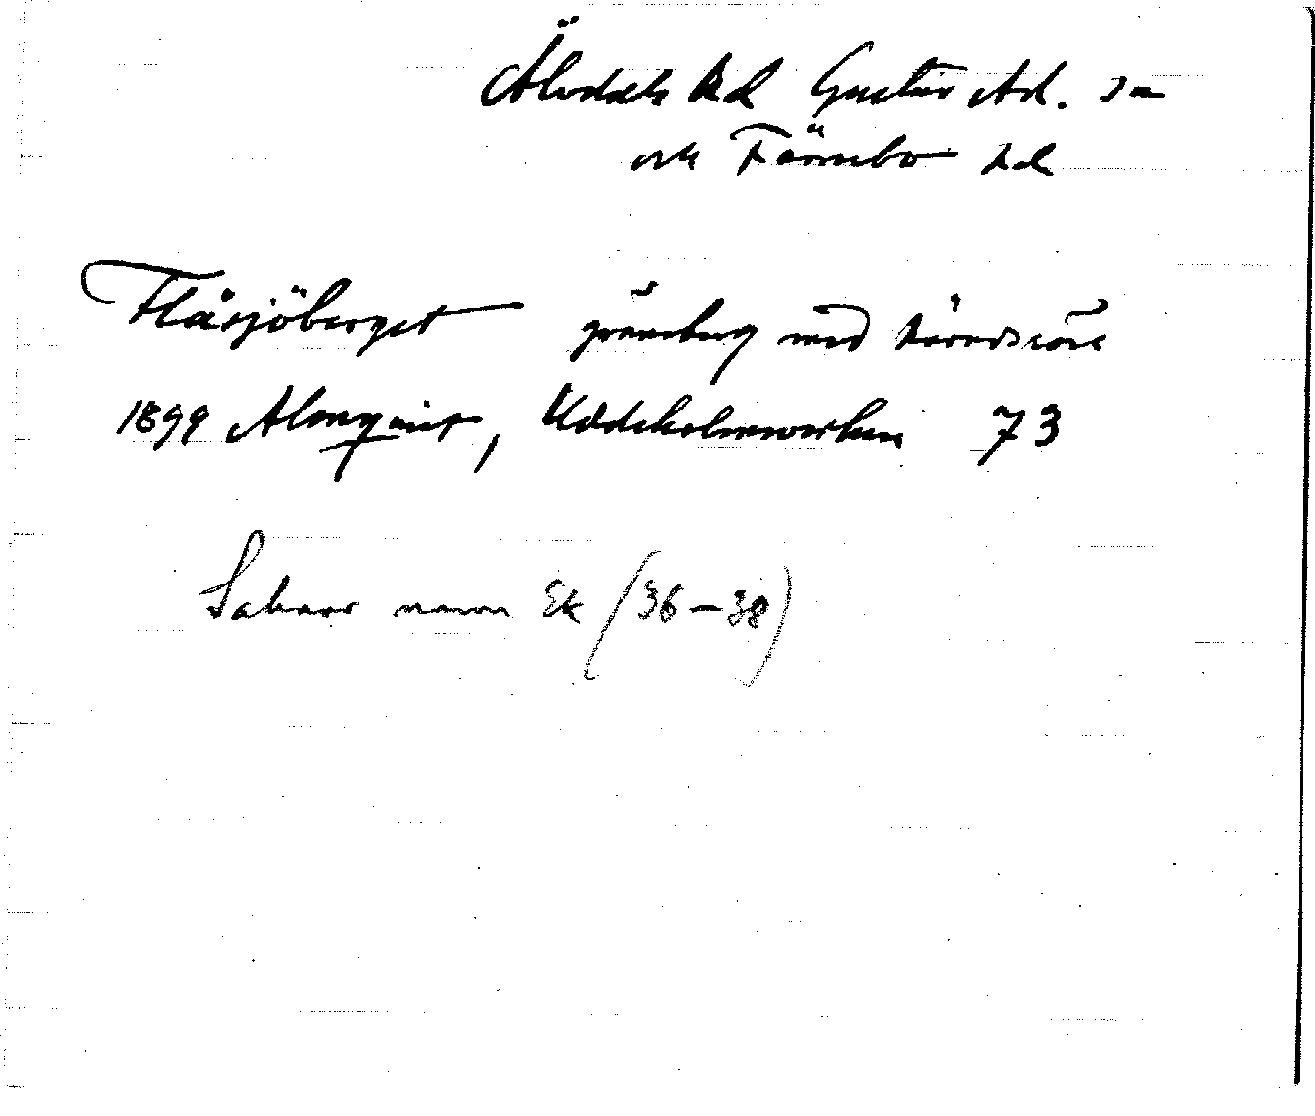 Älvdals hd Gustav Ad. sn
och Färnebo hd
Flåsjöberget gränsberg med häradsröse
1899 Almqvist, Uddeholmsverken 73
Saknar namn Ek (36–38)